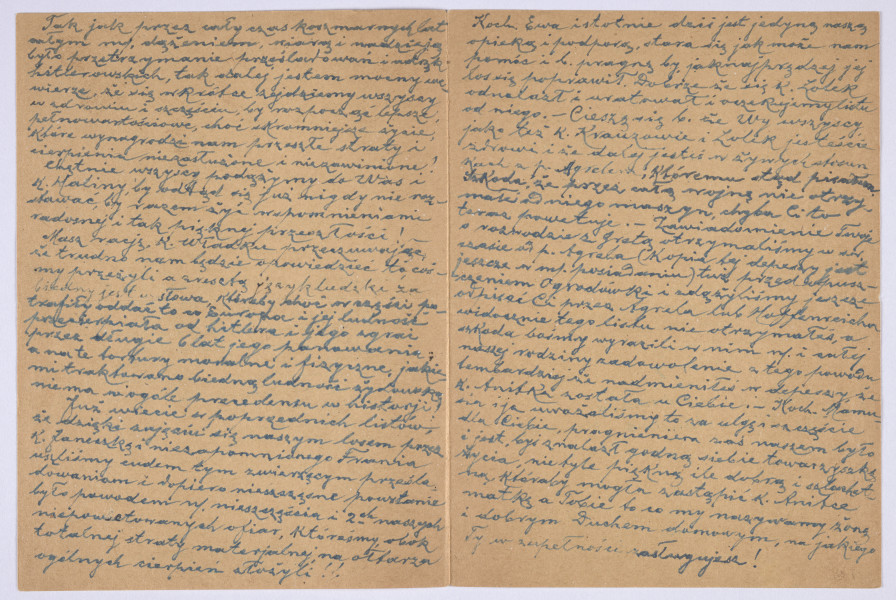 Tak jak przez cały czas koszmarnych lat
całym mj. dążeniem, wiarą i nadzieją
było przetrzymanie prześladowań i
hitlerowskich, tak dalej jestem mocny we
wierze, że się wkrótce zejdziemy wszyscy
w zdrowiu i szczęściu, by rozpocząć lepsze,
pełnowartościowe, choć skromniejsze życie,
które wynagrodzi nam przeszłe straty i
cierpienia niezasłużone i niezawinione!
Chętnie wszyscy podążymy do Was i
k. Haliny by odtąd się już nigdy nie roz-
stawać, by razem żyć wspomnieniami
radosnej i tak pięknej przeszłości! –
Masz rację, k. Władku przeczuwając,
że trudno nam będzie opowiedzieć to, coś-
my przeżyli a zresztą język ludzki za
biedny jest w słowa, któreby choć w części po-
trafiły oddać to co Europa i jej ludność
przecierpiała od hitlera i jego zgrai
przez długie 6 lat jego panowania,
a na te tortury moralne i fizyczne, jakie-
mi traktowano biedną ludność żydowską
niema wogóle precedensu w historji!
Już wiecie z poprzednich listów,
że dzięki zajęciu się naszym losem przez
k. Janeczkę i niezapomnianego Frania
uszliśmy cudem tym zwierzęcym prześla-
dowaniom i dopiero nieszczęsne powstanie
było powodem nj. nieszczęścia i 2ch naszych
nieodżałowanych ofiar, któreśmy obok
totalnej straty materjalnej na ołtarzu
ogólnych cierpień złożyli!!
Koch. Ewa istotnie dziś jest jedyną naszą
opieką i podporą, stara się jak może nam
pomóc i b. pragnę by jaknajprędzej jej
los się poprawił. Dobrze że się k. Lolek
odnalazł i uratował i oczekujemy listu
od niego. – Cieszę się b. że Wy wszyscy
jako też k. Krauzowie i Lolek jesteście
zdrowi i że dalej jesteś w żywych stosun-
kach z p. Agrela, któremu stąd pisałem
Szkoda, że przez całą wojnę nie otrzy-
małeś od niego maszyn, chyba Ci to
teraz powetuje. – Zawiadomienie Twoje
o rozwodzie z Gretą otrzymaliśmy w swo
czasie od p. Agrela (kopia tej depeszy jest
jeszcze w mj. posiadaniu) tuż przed opusz-
czeniem Ogrodówki i zdążyliśmy jeszcze
odpisać Ci przez Agrela lub Haffenreicha
widocznie tego listu nie otrzymałeś, a
szkoda bośmy wyrazili w nim nj. i całej
naszej rodziny zadowolenie z tego powodu
tembardziej że nadmieniłeś w depeszy, że
k. Anitka została u Ciebie. – Koch. Mamu-
sia i ja uważaliśmy to za ulgę i szczęście
dla Ciebie, pragnieniem zaś naszem było
i jest, byś znalazł godną siebie towarzyszkę
życia, nietyle piękną ile dobrą i szlachet-
ną, któraby mogła zastąpić k. Anitce
matkę a Tobie to co my nazywamy żoną
i dobrym Duchem domowym, na jakiego
Ty w zupełności zasługujesz!